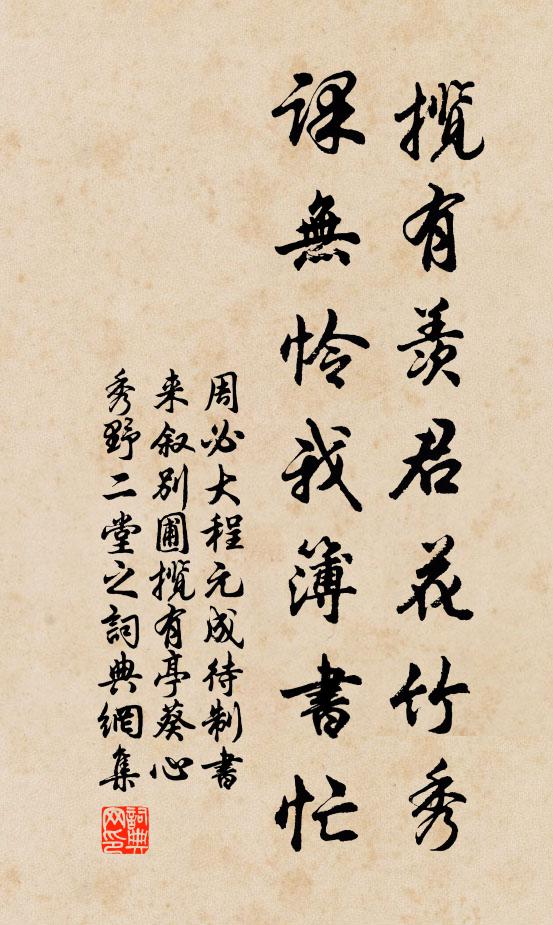 揽有羡君花竹秀
课無怜我簿書忙
周必大程元成待制書
来叙别圃揽有亭葵心
秀野二堂之詞典網集
詞典
网印